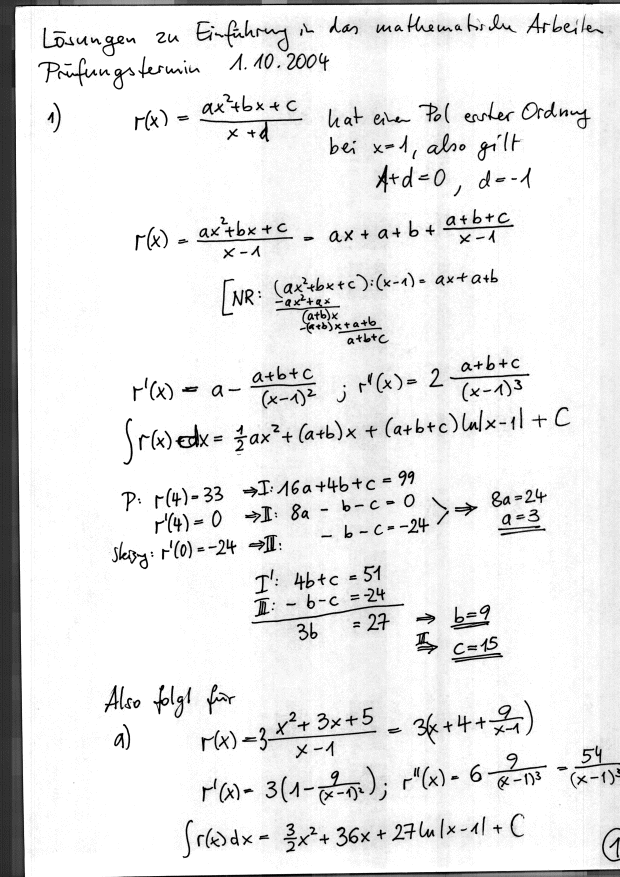 Lösungen zu Einführung in das mathematische Arbeiten
Prüfungstermin 1.10.2004
1) r(x) = (ax²+bx+c)/(x+d) hat einen Pol erster Ordnung
bei x=1, also gilt
1+d=0, d=-1
r(x) = (ax²+bx+c)/(x-1) = ax + a + b + (a+b+c)/(x-1)
[NR: (ax²+bx+c):(x-1) = ax+a+b
-ax²+ax
(a+b)x
-(a+b)x+a+b
a+b+c
r'(x) = a - (a+b+c)/(x-1)² ; r''(x) = 2 (a+b+c)/(x-1)³
∫r(x)dx = ½ax² + (a+b)x + (a+b+c)ln|x-1| + C
P: r(4)=33 ⇒ I: 16a+4b+c = 99
r'(4)=0 ⇒ II: 8a - b - c = 0 ⇒ 8a=24
Steigg: r'(0)=-24 ⇒ III: - b - c = -24 a=3
I': 4b+c = 51
III: -b-c = -24
3b = 27 ⇒ b=9
III ⇒ c=15
Also folgt für
a) r(x) = 3 (x²+3x+5)/(x-1) = 3(x+4+9/(x-1))
r'(x) = 3(1 - 9/(x-1)²); r''(x) = 6 9/(x-1)³ = 54/(x-1)³
∫r(x)dx = 3/2x² + 36x + 27ln|x-1| + C
1